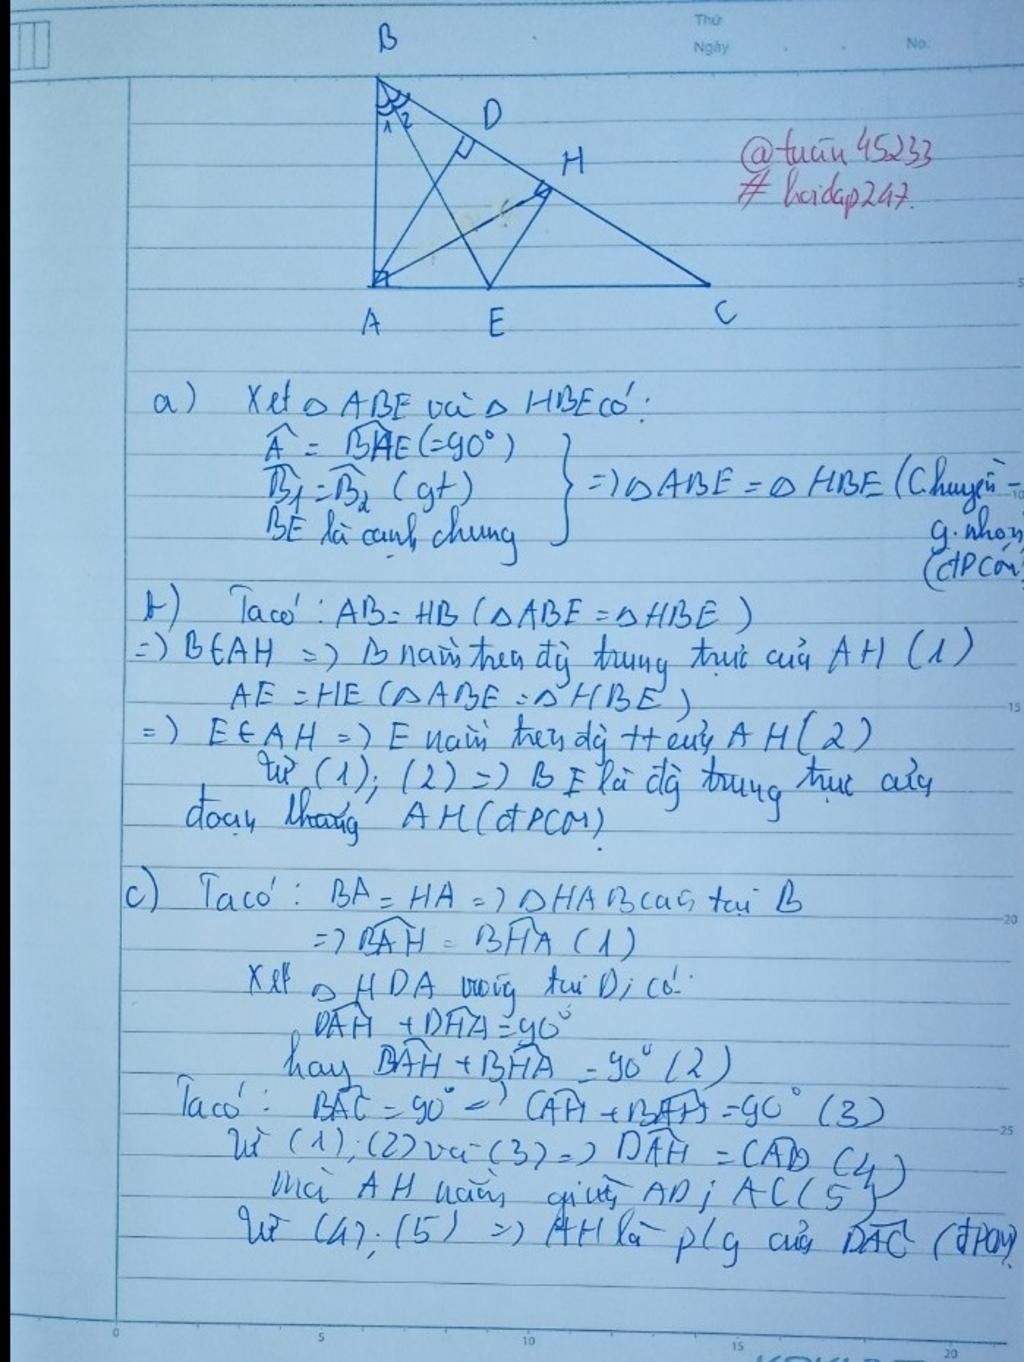 Thứ
Ngày
No.
B
1 2
D
H
@tuấn 45233
# hoidap247.
A
E
C
a) Xét △ ABE và △ HBE có:
Â = BHE (=90°)
B1 = B2 (gt)
BE là cạnh chung
=> △ ABE = △ HBE (Chuyền -
g. nhọn
(đPCM)
b) Ta có: AB = HB (△ ABE = △ HBE)
=> B ∈ AH => B nằm trên đg trung trực của AH (1)
AE = HE (△ ABE = △ HBE)
=> E ∈ AH => E nằm trên đg tt của AH (2)
Từ (1); (2) => BE là đg trung trực của
đoạn thẳng AH (đPCM)
c) Ta có: BA = HA => △ HAB cân tại B
=> BAH = BHA (1)
Xét △ HDA vuông tại D; có:
DAH + DHA = 90°
hay BAH + BHA = 90° (2)
Ta có: BAC = 90° => CAH + BAH = 90° (3)
Từ (1); (2) và (3) => DAH = CAD (4)
mà AH nằm giữa AD; AC (5)
Từ (4); (5) => AH là p/g của DAC (đPCM)
0 5 10 15 20
5
10
15
20
25